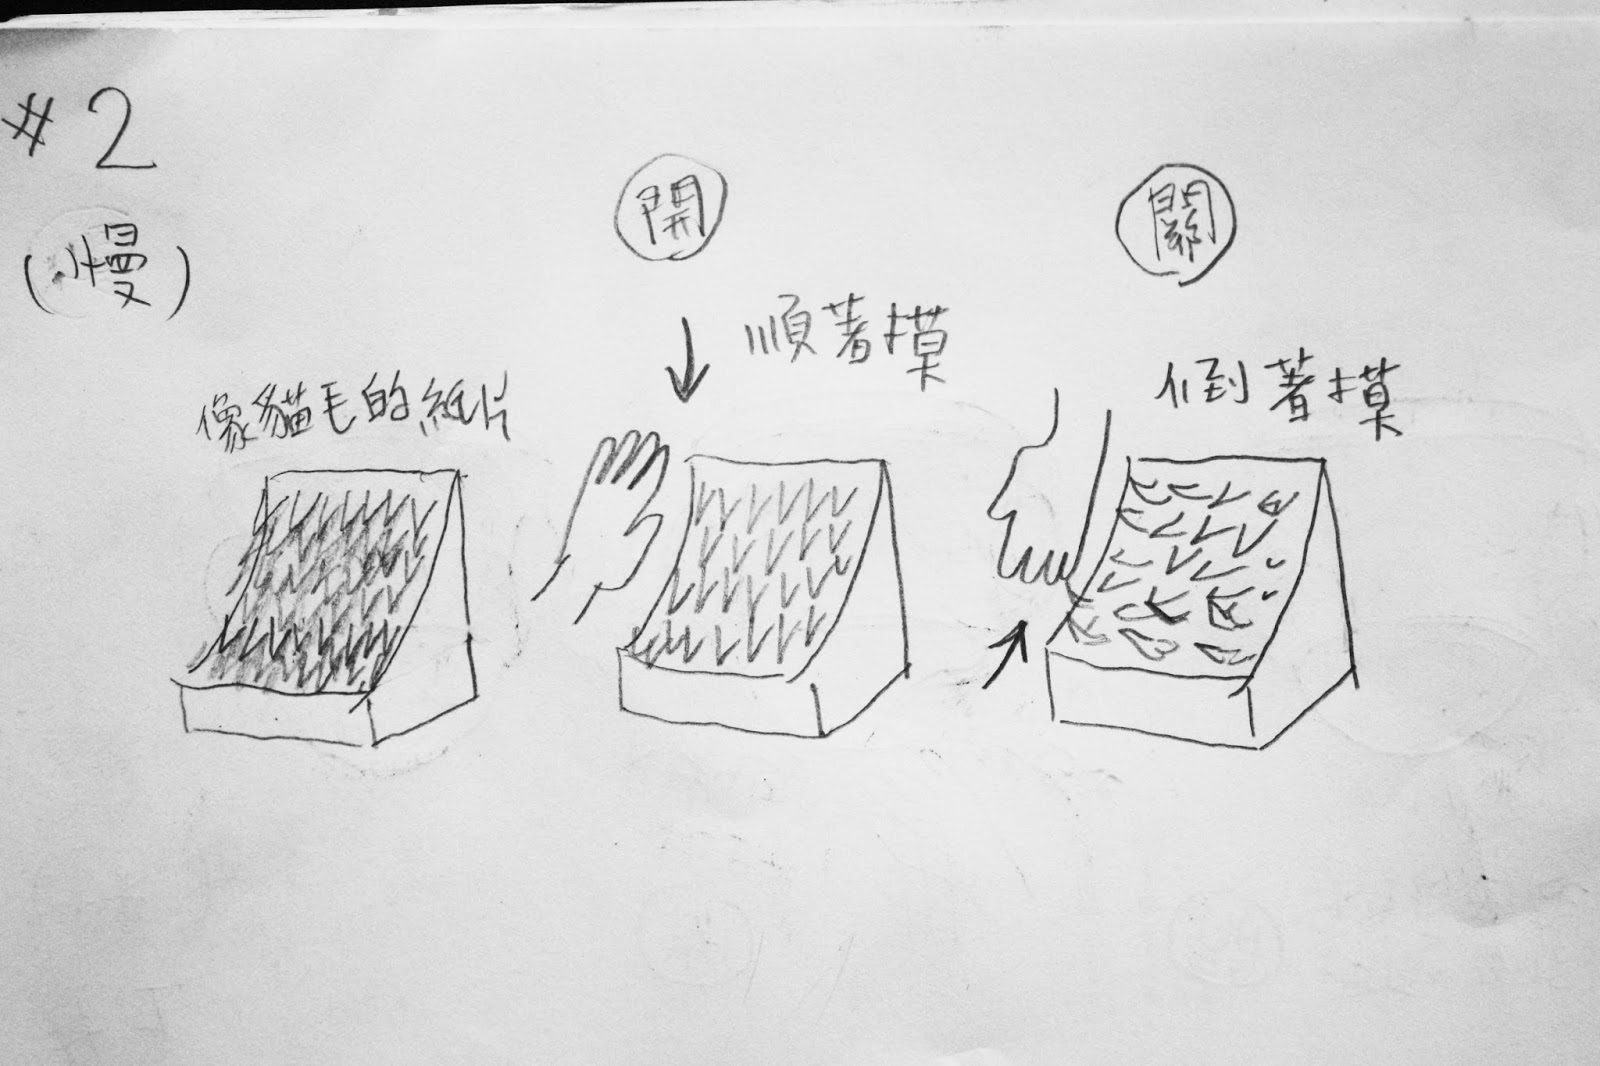 #2
(慢)
開
關
順著摸
倒著摸
像貓毛的紙片